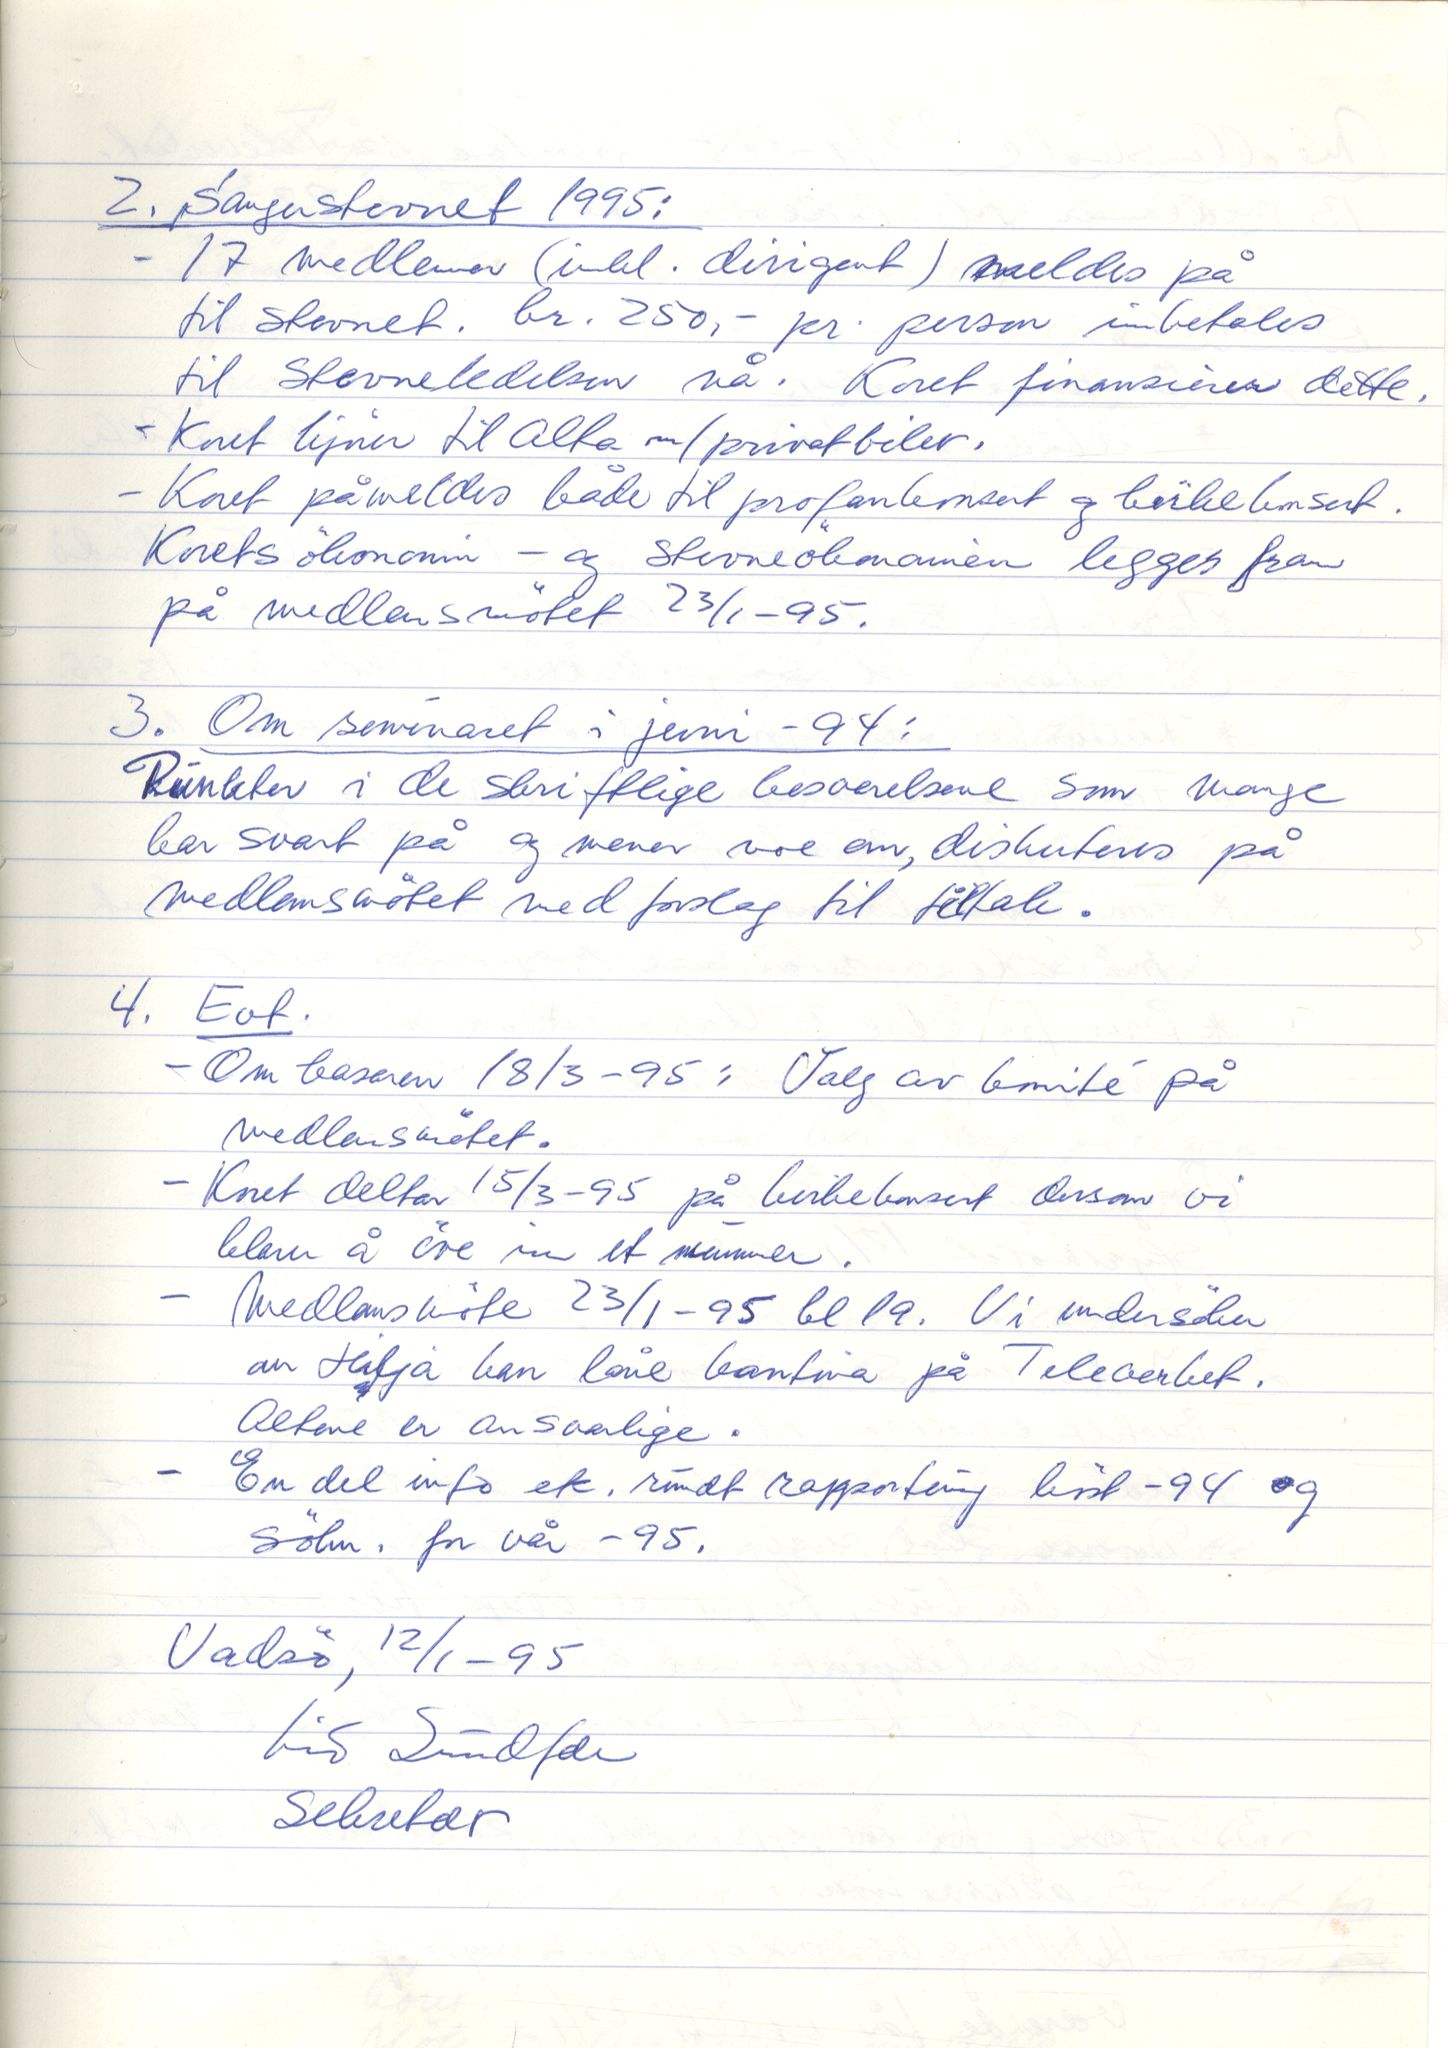 2. Sangerstevnet 1995:
- 17 medlemmer (inkl. dirigent) meldes på
til stevnet. kr. 250,- pr. person innbetales
til stevneledelsen nå. Koret finansierer dette.
- Koret kjører til Alta m/privatbiler.
- Koret påmeldes både til profankonsert og kirkekonsert.
Korets ökonomi - og stevneökonomien legges fram
på medlemsmötet 23/1-95.
3. Om seminaret i juni -94:
Punkter i de skriftlige besvarelsene som mange
har svart på og mener noe om, diskuteres på
medlemsmötet med forslag til tiltak.
4. Evt.
- Om basaren 18/3-95: Valg av komité på
medlemsmötet.
- Koret deltar 15/3-95 på kirkekonsert dersom vi
klarer å öve inn et nummer.
- Medlemsmöte 23/1-95 kl 19. Vi undersöker
om kan låne kantina på Televerket.
Altene er ansvarlige.
- En del info etc. rundt rapportering höst -94 og
sökn. for vår -95.
Vadsö, 12/1-95
Sekretær